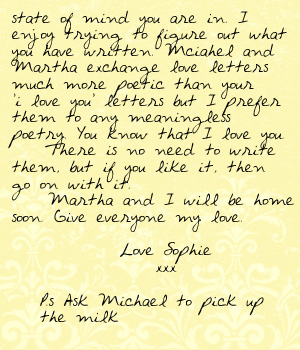 state of mind you are in. I
enjoy trying to figure out what
you have written. Mciahel and
Martha exchange love letters
much more poetic than your
'i love you' letters but I prefer
them to any meaningless
poetry. You know that I love you
There is no need to write
them, but if you like it, then
go on with it.
Martha and I will be home
soon. Give everyone my love.
Love Sophie
xxx
P.s Ask Michael to pick up
the milk